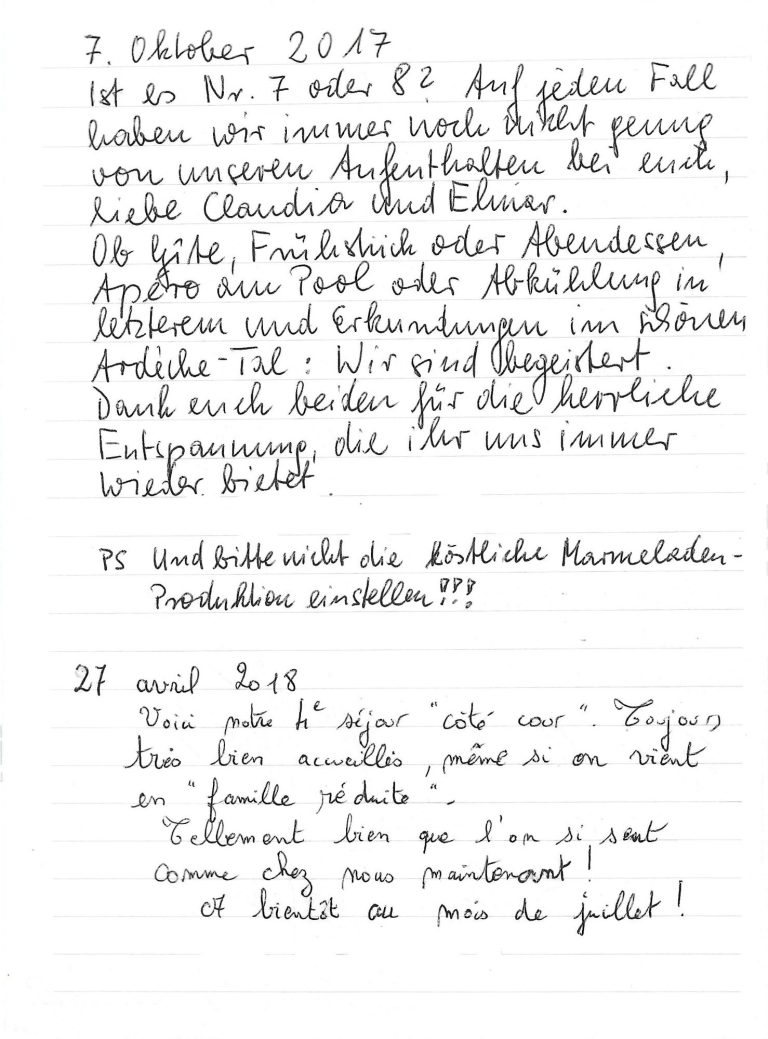 7. Oktober 2017
Ist es Nr. 7 oder 8? Auf jeden Fall
haben wir immer noch nicht genug
von unseren Aufenthalten bei euch,
liebe Claudia und Elmar.
Ob Gîte, Frühstück oder Abendessen,
Apéro am Pool oder Abkühlung in
letzterem und Erkundungen im schönen
Ardèche-Tal: Wir sind begeistert.
Dank euch beiden für die herrliche
Entspannung, die ihr uns immer
wieder bietet.
PS Und bitte nicht die köstliche Marmeladen-
Produktion einstellen!!!
27 avril 2018
Voici notre 4e séjour "côté cour". Toujours
très bien accueillis, même si on vient
en "famille réduite".
Tellement bien que l'on si sent
comme chez nous maintenant!
A bientôt au mois de juillet!